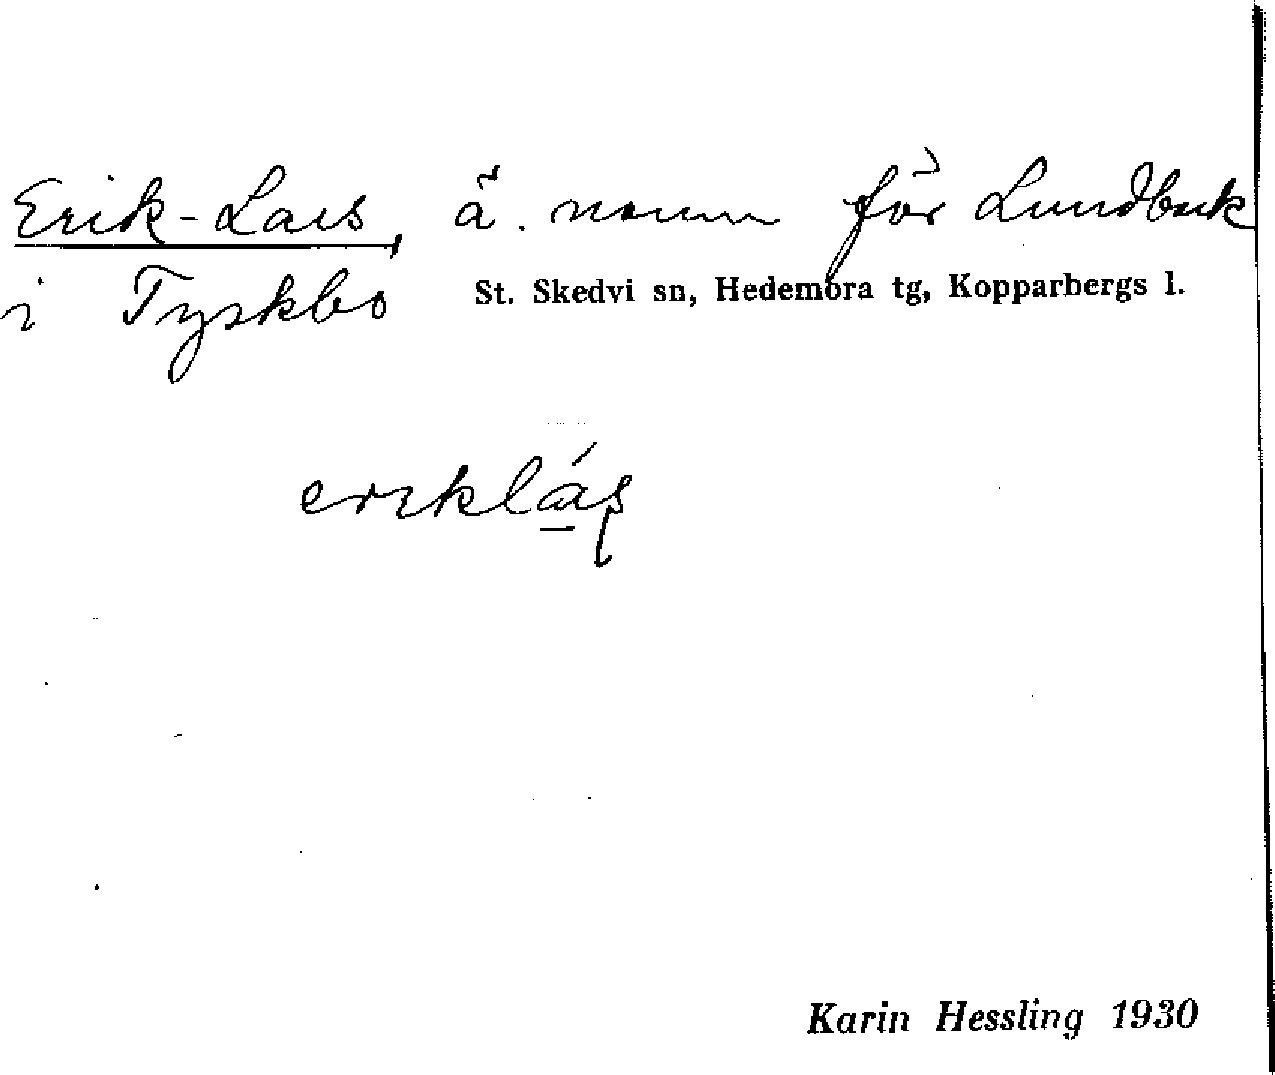 Erik-Lars, ä. namn för Lundbäck
i Tyskbo St. Skedvi sn, Hedemora tg, Kopparbergs l.
eriklás
Karin Hessling 1930